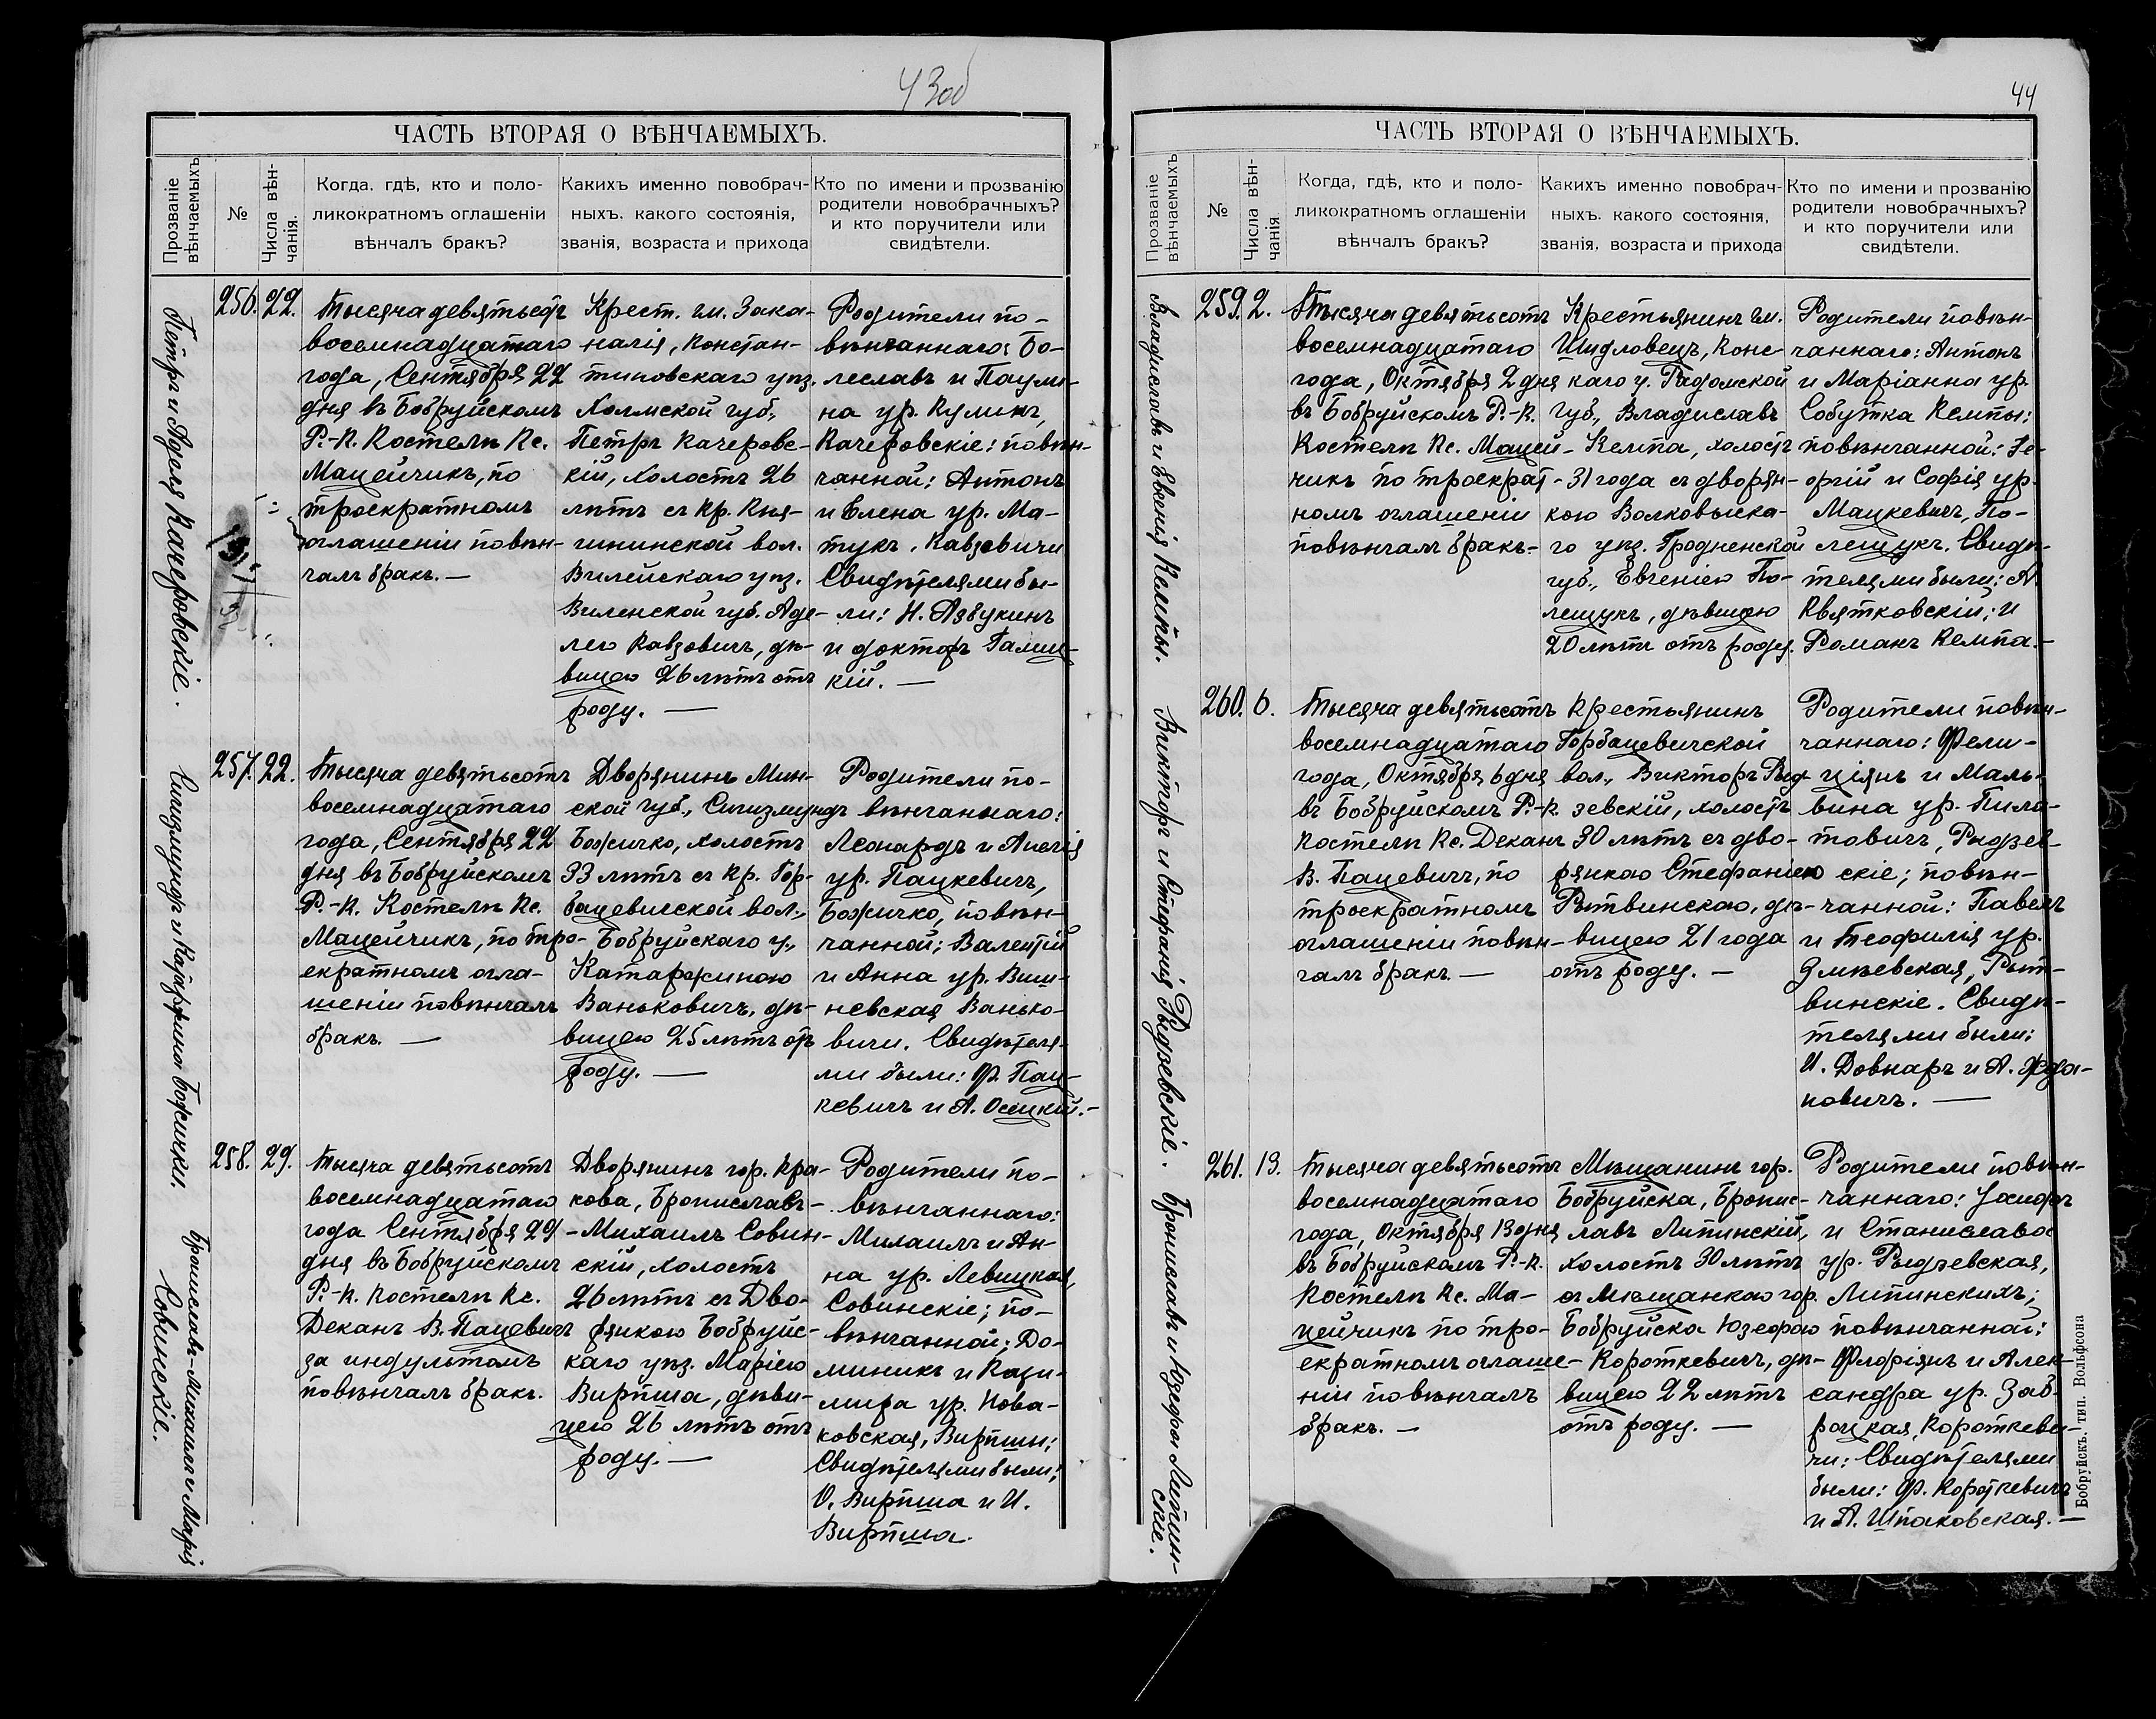 43об
ЧАСТЬ ВТОРАЯ О ВѢНЧАЕМЫХЪ.
Прозваніе вѣнчаемыхъ
№
Числа вѣнчанія.
Когда. гдѣ, кто и поло-
ликократномъ оглашеніи
вѣнчалъ бракъ?
Какихъ именно повобрач-
ныхъ. какого состоянія,
званія, возраста и прихода
Кто по имени и прозванію
родители новобрачныхъ?
и кто поручители или
свидѣтели.
Петръ и Аделя Качеровскіе.
256. 22.
Тысяча девятьсотъ
восемнадцатаго
года, Сентября 22
дня въ Бобруйскомъ
Р.-К. Костелѣ Кс.
Мацейчикъ, по
троекратномъ
оглашеніи повѣн-
чалъ бракъ. —
Крест. гм. Зака-
налія, Констан-
тиновскаго уѣз.
Холмской губ.,
Петръ Качеровс-
кій, холостъ 26
лѣтъ съ Кр. Кня-
гининской вол.
Вилейскаго уѣз.
Виленской губ. Аде-
лею Кавзовичъ, дѣ-
вицею 26 лѣтъ отъ
роду. —
Родители по-
вѣнчаннаго: Бо-
леславъ и Паули-
на ур. Куликъ,
Качеровскіе: повѣн-
чанной: Антонъ
и Елена ур. Ма-
тукъ, Кавзовичи
Свидѣтелями бы-
ли: Н. Азбукинъ
и докторъ Галиц-
кій. —
Сигизмундъ и Катаржина Божички.
257. 22.
Тысяча девятьсотъ
восемнадцатаго
года, Сентября 22
дня въ Бобруйскомъ
Р.-К. Костелѣ Кс.
Мацейчикъ, по тро-
екратномъ огла-
шеніи повѣнчалъ
бракъ. —
Дворянинъ Мин-
ской губ., Сигизмундъ
Божичко, холостъ
33 лѣтъ съ Кр. Гор-
бацевичской вол.,
Бобруйскаго у.,
Катаржиною
Ваньковичъ, дѣ-
вицею 25 лѣтъ отъ
роду. —
Родители по-
вѣнчаннаго:
Леонардъ и Анелія
ур. Пацкевичъ,
Божичко, повѣн-
чанной; Валентій
и Анна ур. Виш-
невская Ванько-
вичи. Свидѣтеля-
ми были: Ф. Пац-
кевичъ и А. Осицкій.—
Брониславъ-Михаилъ и Марія
Совинскіе.
258. 29.
Тысяча девятьсотъ
восемнадцатаго
года Сентября 29
дня въ Бобруйскомъ
Р.-К. Костелѣ Кс.
Деканъ В. Пацевичъ
за индультомъ
повѣнчалъ бракъ.
Дворянинъ гор. Кра-
кова, Брониславъ-
-Михаилъ Совин-
скій, холостъ
26 лѣтъ съ Дво-
рянкою Бобруйс-
каго уѣз. Маріею
Вирпша, дѣви-
цею 26 лѣтъ отъ
роду. —
Родители по-
вѣнчаннаго:
Михаилъ и Ан-
на ур. Левицкая,
Совинскіе; по-
вѣнчанной: До-
миникъ и Кази-
мира ур. Нова-
ковская, Вирпши;
Свидѣтелями были:
О. Вирпша и И.
Вирпша.
44
ЧАСТЬ ВТОРАЯ О ВѢНЧАЕМЫХЪ.
Прозваніе вѣнчаемыхъ
№
Числа вѣнчанія
Когда, гдѣ, кто и поло-
ликократномъ оглашеніи
вѣнчалъ бракъ?
Какихъ именно повобрач-
ныхъ. какого состоянія,
званія, возраста и прихода
Кто по имени и прозванію
родители новобрачныхъ?
и кто поручители или
свидѣтели.
Владиславъ и Евгенія Кемпы.
259. 2.
Тысяча девятьсотъ
восемнадцатаго
года, Октября 2 дня
въ Бобруйскомъ Р.-К.
Костелѣ Кс. Мацей-
чикъ по троекрат-
номъ оглашеніи
повѣнчалъ бракъ-
Крестьянинъ гм.
Шидловецъ, Конс-
каго у. Радомской
губ., Владиславъ
Кемпа, холостъ
31 года съ дворян-
кою Волковыска-
го уѣз. Гродненской
губ., Евгеніею По-
лещукъ, дѣвицею
20 лѣтъ отъ роду.
Родители повѣн-
чаннаго: Антонъ
и Маріанна ур.
Собутка Кемпы:
повѣнчанной: Ге-
оргій и Софія ур.
Мацкевичъ, По-
лещукъ. Свидѣ-
телями были: А.
Квятковскій; и
Романъ Кемпа.—
Викторъ и Стефанія Рыдзевскіе.
260. 6.
Тысяча девятьсотъ
восемнадцатаго
года, Октября 6 дня
въ Бобруйскомъ Р.-К.
Костелѣ Кс. Деканъ
В. Пацевичъ, по
троекратномъ
оглашеніи повѣн-
чалъ бракъ —
Крестьянинъ
Горбацевичской
вол., Викторъ Рыд-
зевскій, холостъ
30 лѣтъ съ дво-
рянкою Стефаніею
Рытвинскою, дѣ-
вицею 21 года
отъ роду. —
Родители повѣн-
чаннаго: Фели-
ціянъ и Маль-
вина ур. Пила-
товичъ, Рыдзев-
скіе; повѣн-
чанной: Павелъ
и Теофилія ур.
Змѣевская, Рыт-
винскіе. Свидѣ-
телями были:
И. Довнаръ и А. Жда-
новичъ. —
Брониславъ и Юзефа Липин-
скіе.
261. 13.
Тысяча девятьсотъ
восемнадцатаго
года, Октября 13 дня
въ Бобруйскомъ Р.-К.
Костелѣ Кс. Ма-
цейчикъ по тро-
екратномъ оглаше-
ніи повѣнчалъ
бракъ. —
Мѣщанинъ гор.
Бобруйска, Бронис-
лавъ Липинскій,
холостъ 30 лѣтъ
съ Мѣщанкою гор.
Бобруйска Юзефою
Короткевичъ, дѣ-
вицею 22 лѣтъ
отъ роду. —
Родители повѣн-
чаннаго: Іосифъ
и Станислава
ур. Рыдзевская,
Липинскихъ;
повѣнчанной:
Флоріянъ и Алек-
сандра ур. Заб-
роцкая, Короткеви-
чи: Свидѣтелями
были: Ф. Короткевичъ
и А. Шпаковская. —
Бобруйскъ. тип. Вольфсона